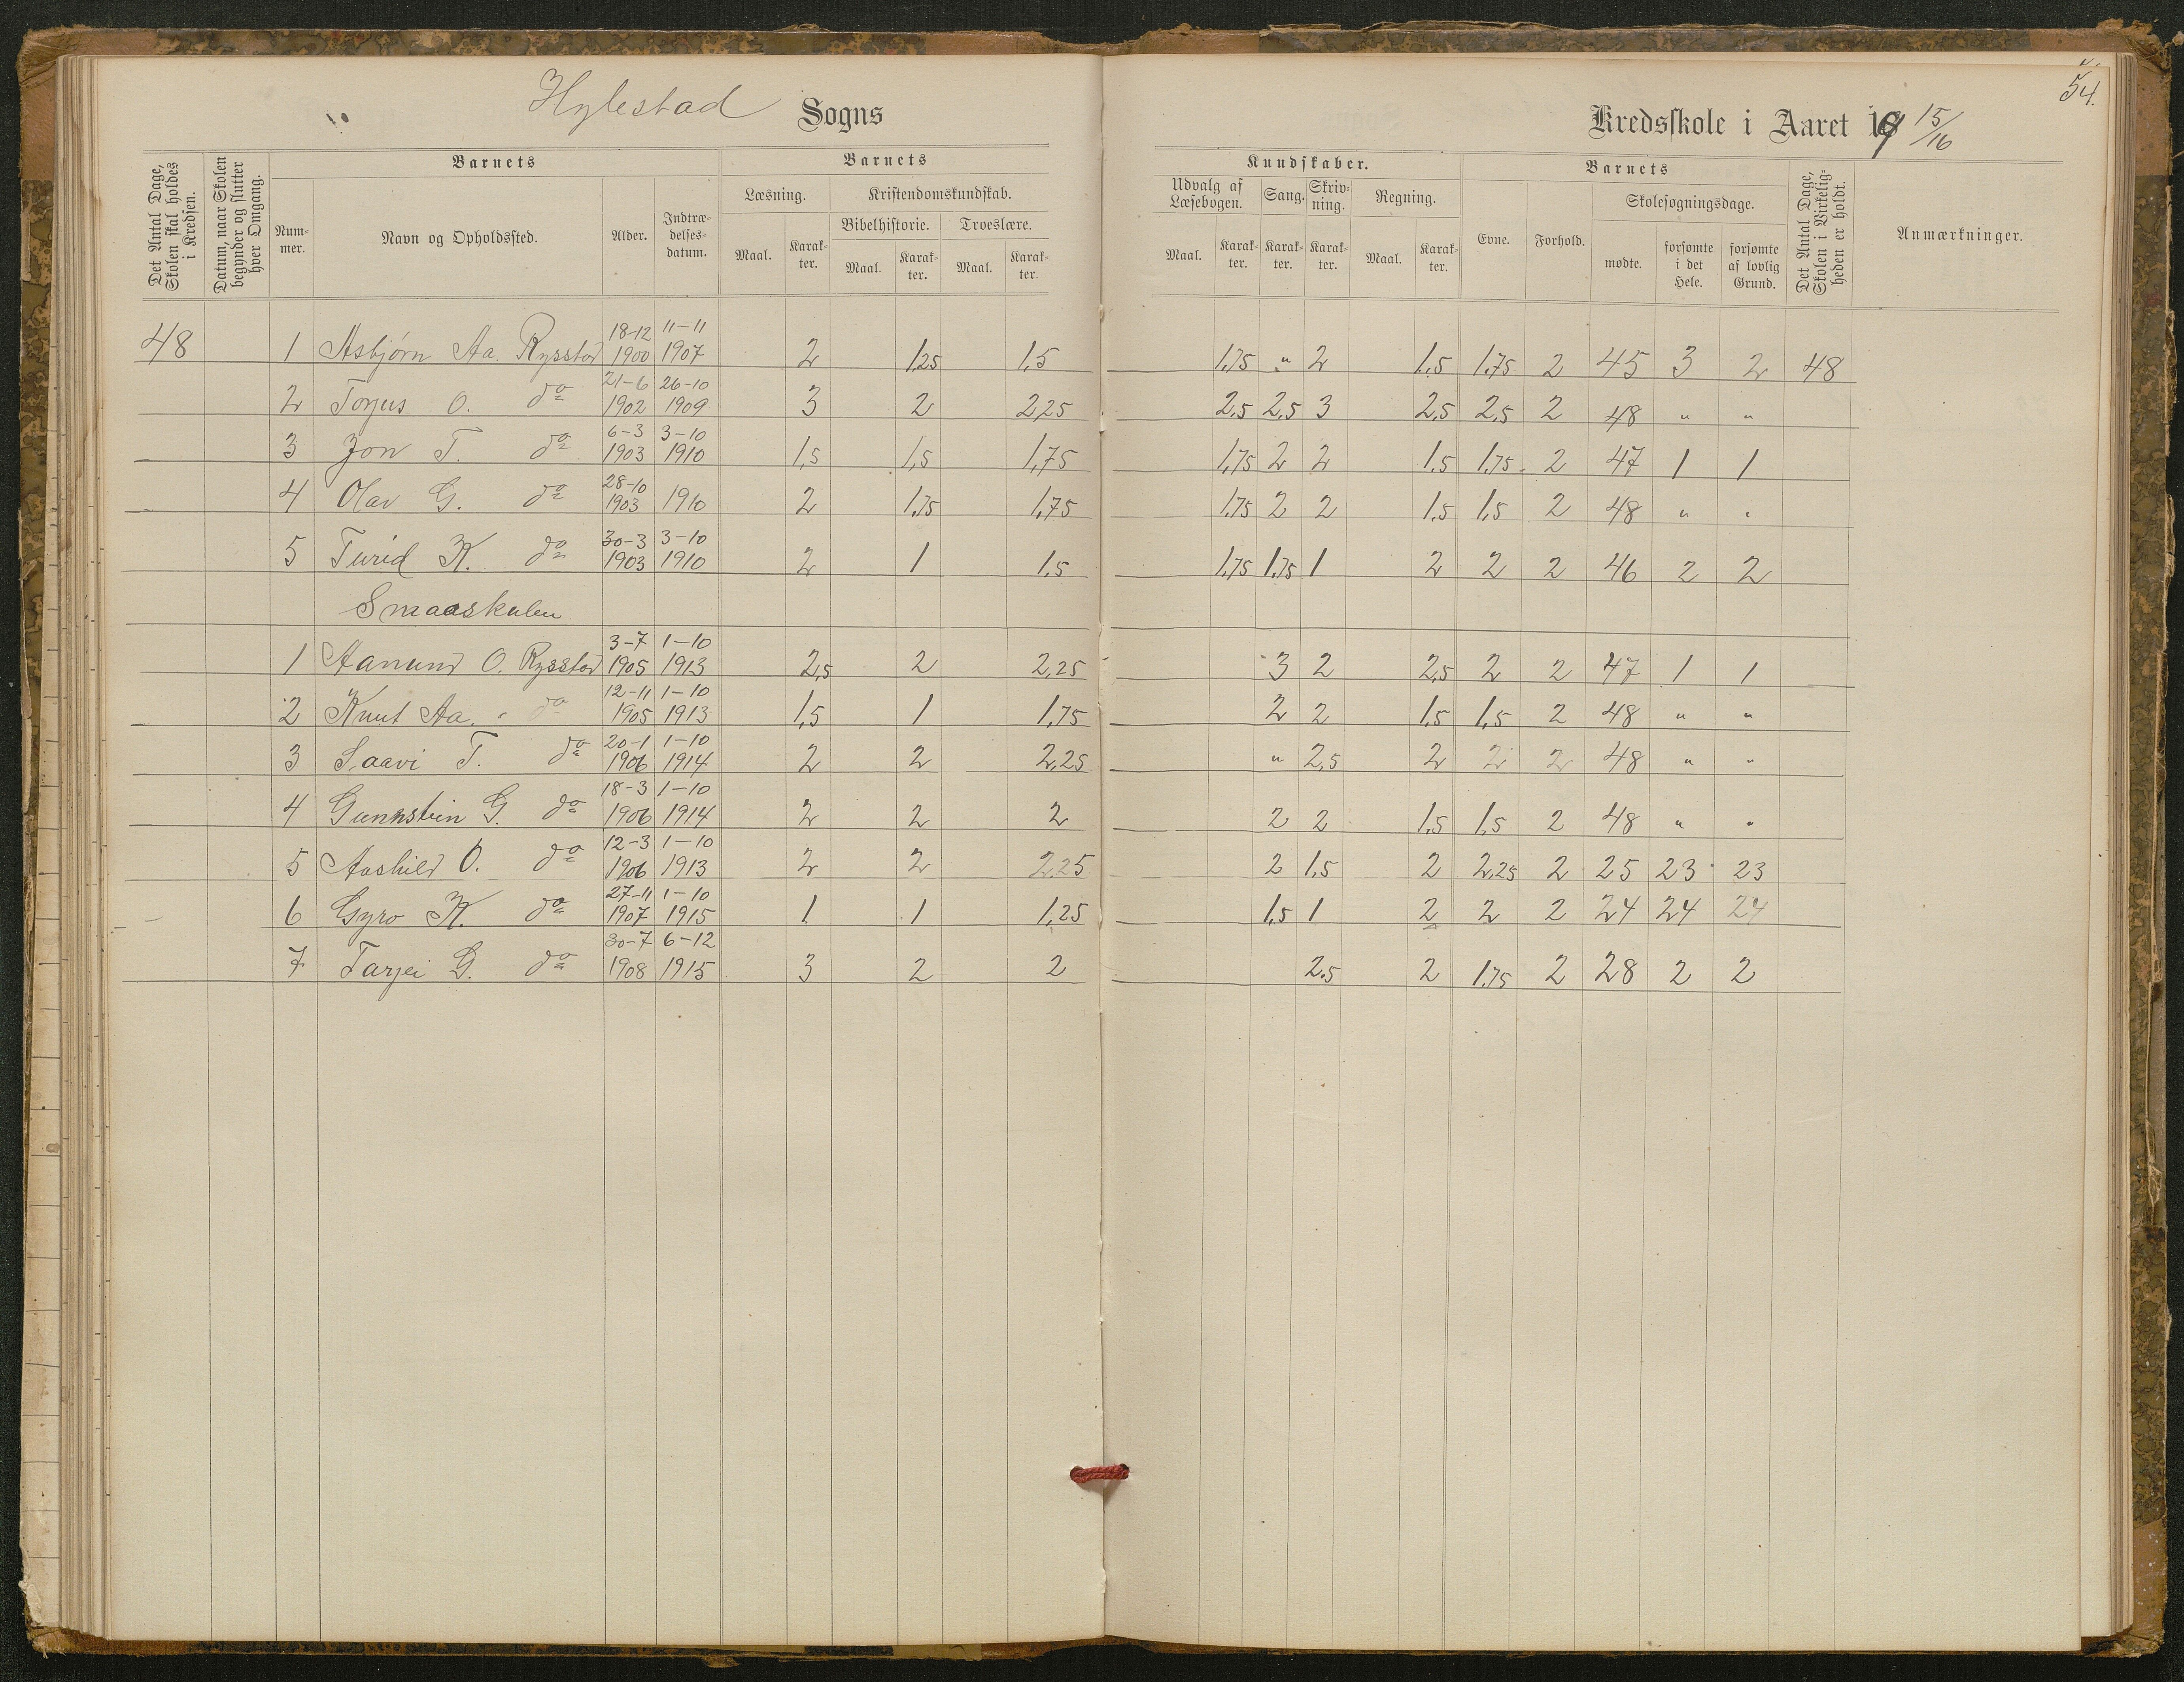 Hylestad Sogns
Kredsskole i Aaret 19 15/16
54.
Det Antal Dage, Skolen skal holdes i Kredsen.
Datum, naar Skolen begynder og slutter hver Omgang.
Barnets
Nummer.
Navn og Opholdssted.
Alder.
Indtrædelsesdatum.
Barnets
Læsning.
Maal.
Karakter.
Kristendomskundskab.
Bibelhistorie.
Maal.
Karakter.
Troeslære.
Maal.
Karakter.
Kundskaber.
Udvalg af Læsebogen.
Maal.
Karakter.
Sang.
Karakter.
Skrivning.
Karakter.
Regning.
Maal.
Karakter.
Barnets
Evne.
Forhold.
Skolesøgningsdage.
mødte.
forsømte i det Hele.
forsømte af lovlig Grund.
Det Antal Dage, Skolen i Virkeligheden er holdt.
Anmærkninger.
48 1 Asbjørn Aa. Rysstad 18-12 1900 11-11 1907 2 1,25 1,5 1,75 " 2 1,5 1,75 2 45 3 2 48
2 Torjus O. do 21-6 1902 26-10 1909 3 2 2,25 2,5 2,5 3 2,5 2,5 2 48 " "
3 Jon T. do 6-3 1903 3-10 1910 1,5 1,5 1,75 1,75 2 2 1,5 1,75 2 47 1 1
4 Olav G. do 28-10 1903 1910 2 1,75 1,75 1,75 2 2 1,5 1,5 2 48 " "
5 Turid K. do 30-3 1903 3-10 1910 2 1 1,5 1,75 1,75 1 2 2 2 46 2 2
Smaaskulen
1 Aanund O. Rysstad 3-7 1905 1-10 1913 2,5 2 2,25 3 2 2,5 2 2 47 1 1
2 Knut Aa. do 12-11 1905 1-10 1913 1,5 1 1,75 2 2 1,5 1,5 2 48 " "
3 Saavi T. do 20-1 1906 1-10 1914 2 2 2,25 " 2,5 2 2 2 48 " "
4 Gunnstein G. do 18-3 1906 1-10 1914 2 2 2 2 2 1,5 1,5 2 48 " "
5 Aashild O. do 12-3 1906 1-10 1913 2 2 2,25 2 1,5 2 2,25 2 25 23 23
6 Gyro K. do 27-11 1907 1-10 1915 1 1 1,25 1,5 1 2 2 2 24 24 24
7 Tarjei G. do 30-7 1908 6-12 1915 3 2 2 2,5 2 1,75 2 28 2 2